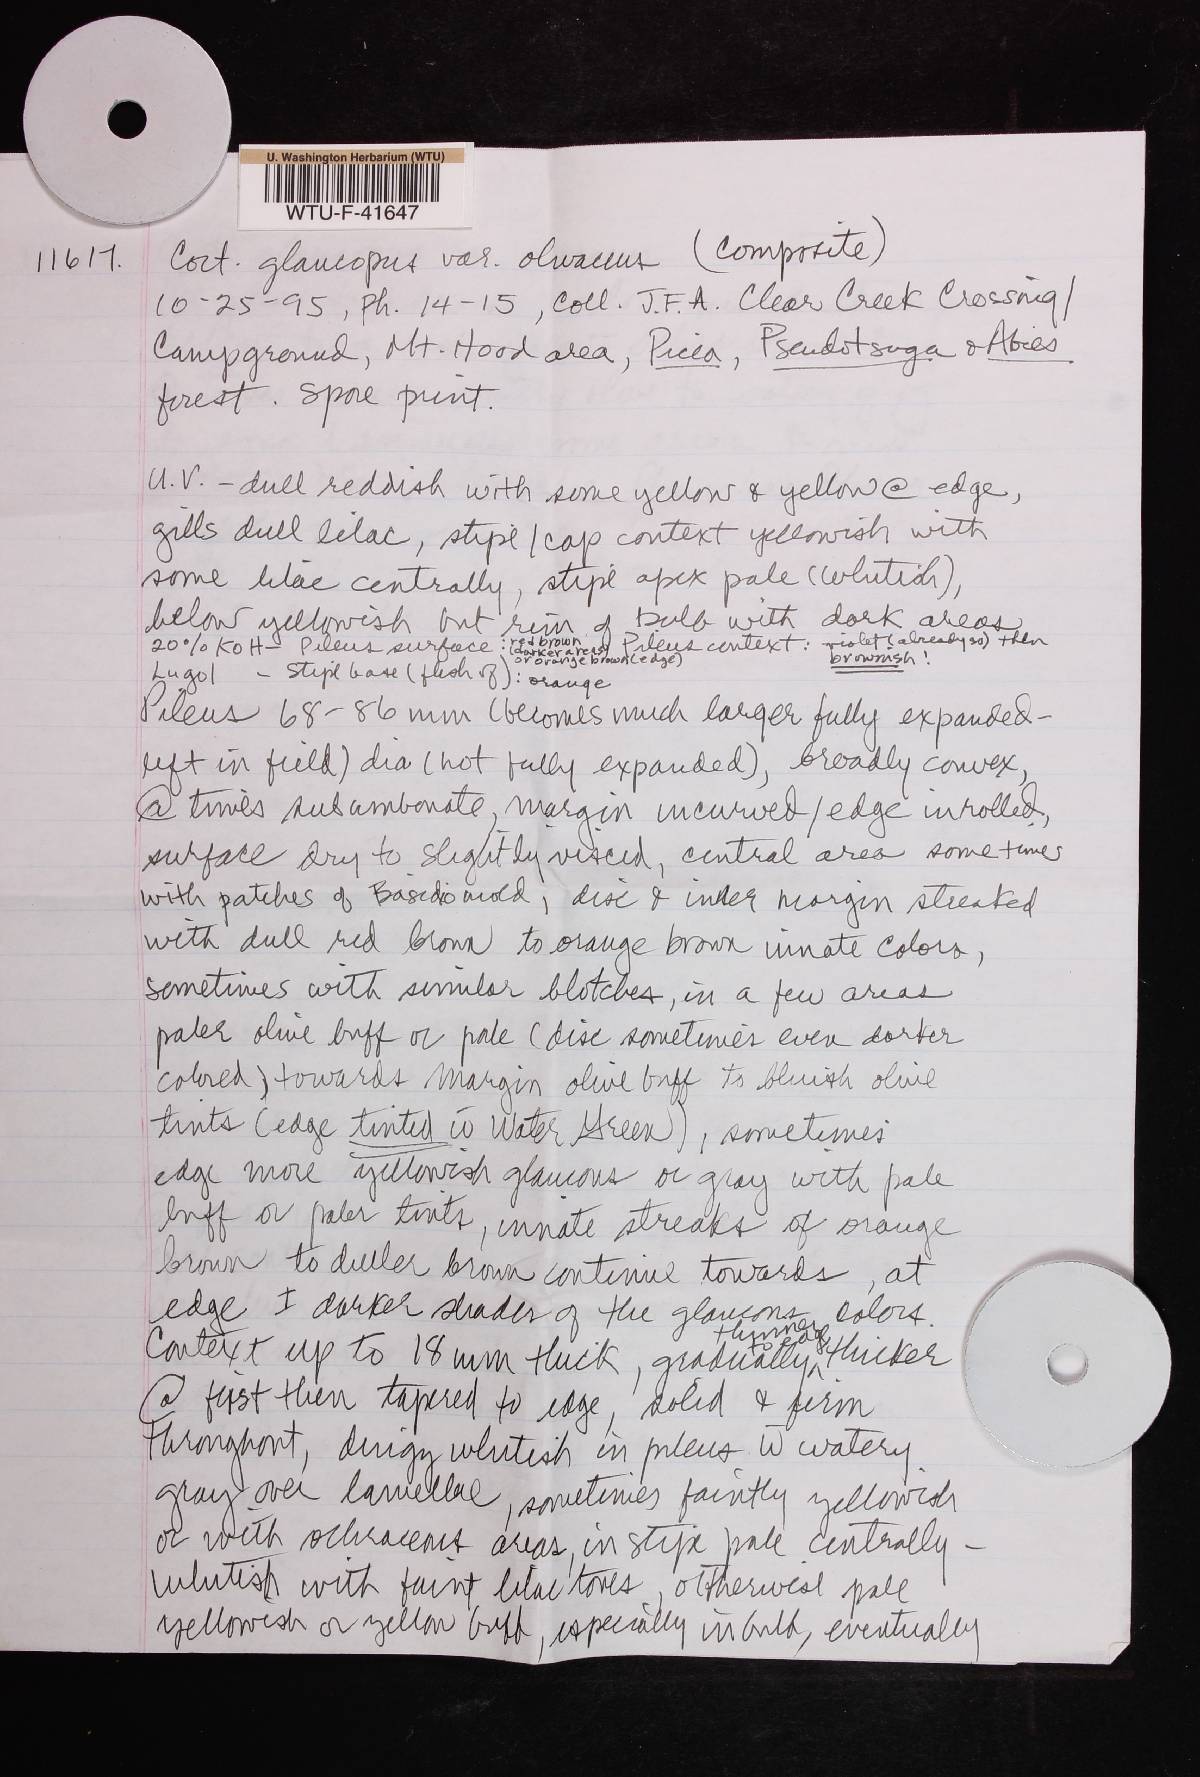 U. Washington Herbarium (WTU)
WTU-F-41647
11617. Cort. glaucopus var. olivaceus (composite)
10-25-95, Ph. 14-15, Coll. J.F.A. Clear Creek Crossing/
Campground, Mt. Hood area, Picea, Pseudotsuga & Abies
forest. Spore print.
U.V. - dull reddish with some yellow & yellow @ edge,
gills dull lilac, stipe/cap context yellowish with
some lilac centrally, stipe apex pale (whitish),
below yellowish but rim of bulb with dark areas
20% KOH - Pileus surface: red brown (darker areas) or orange brown (edge) Pileus context: violet (already so) then brownish!
Lugol - Stipe base (flesh of): orange
Pileus 68-86 mm (becomes much larger fully expanded-
left in field) dia (not fully expanded), broadly convex,
@ times subumbonate, margin incurved/edge inrolled,
surface dry to slightly viscid, central area sometimes
with patches of Basidiomold; disc & inner margin streaked
with dull red brown to orange brown innate colors,
sometimes with similar blotches, in a few areas
paler olive buff or pale (disc sometimes even darker
colored), towards margin olive buff to bluish olive
tints (edge tinted w Water Green), sometimes
edge more yellowish glaucous or gray with pale
buff or paler tints, innate streaks of orange
brown to duller brown continue towards, at
edge I darker shades of the glaucous colors.
Context up to 18 mm thick, gradually thinner to edge thicker
@ first then tapered to edge, solid & firm
throughout, dingy whitish in pileus w watery
gray over lamellae, sometimes faintly yellowish
or with ochraceous areas, in stipe pale centrally -
whitish with faint lilac tones, otherwise pale
yellowish or yellow buff, especially in bulb, eventually